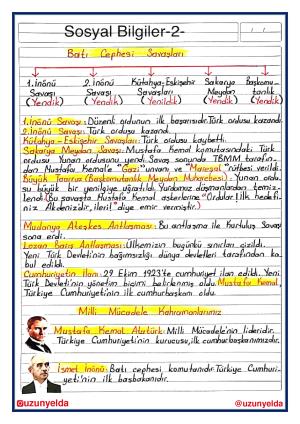 Sosyal Bilgiler-2-
Batı Cephesi Savaşları
1.İnönü 2.İnönü Kütahya-Eskişehir Sakarya Başkomu-
Savaşı Savaşı Savaşları Meydan tanlık
(Yendik) (Yendik) (Yenildik) (Yendik) (Yendik)
1.İnönü Savaşı: Düzenli ordunun ilk başarısıdır. Türk ordusu kazandı.
2.İnönü Savaşı: Türk ordusu kazandı.
Kütahya-Eskişehir Savaşları: Türk ordusu kaybetti.
Sakarya Meydan Savaşı: Mustafa Kemal komutasındaki Türk
ordusu Yunan ordusunu yendi. Savaş sonunda TBMM tarafın-
dan Mustafa Kemal'e "Gazi" unvanı ve "Mareşal" rütbesi verildi.
Büyük Taarruz (Başkomutanlık Meydan Muharebesi): Yunan ordu-
su büyük bir yenilgiye uğratıldı. Yurdumuz düşmanlardan temiz-
lendi. (Bu savaşta Mustafa Kemal askerlerine "Ordular! ilk hedefi-
niz Akdenizdir, ileri!" diye emir vermiştir.)
Mudanya Ateşkes Antlaşması: Bu antlaşma ile Kurtuluş Savaşı
sona erdi.
Lozan Barış Antlaşması: Ülkemizin bugünkü sınırları çizildi.
Yeni Türk Devleti'nin bağımsızlığı dünya devletleri tarafından ka-
bul edildi.
Cumhuriyetin İlanı: 29 Ekim 1923'te cumhuriyet ilan edildi. Yeni
Türk Devleti'nin yönetim biçimi belirlenmiş oldu. Mustafa Kemal,
Türkiye Cumhuriyeti'nin ilk cumhurbaşkanı oldu.
Milli Mücadele Kahramanlarımız
Mustafa Kemal Atatürk: Milli Mücadele'nin lideridir.
Türkiye Cumhuriyeti'nin kurucusu, ilk cumhurbaşkanımızdır.
İsmet İnönü: Batı cephesi komutanıdır. Türkiye Cumhuri-
yeti'nin ilk başbakanıdır.
@uzunyelda @uzunyelda